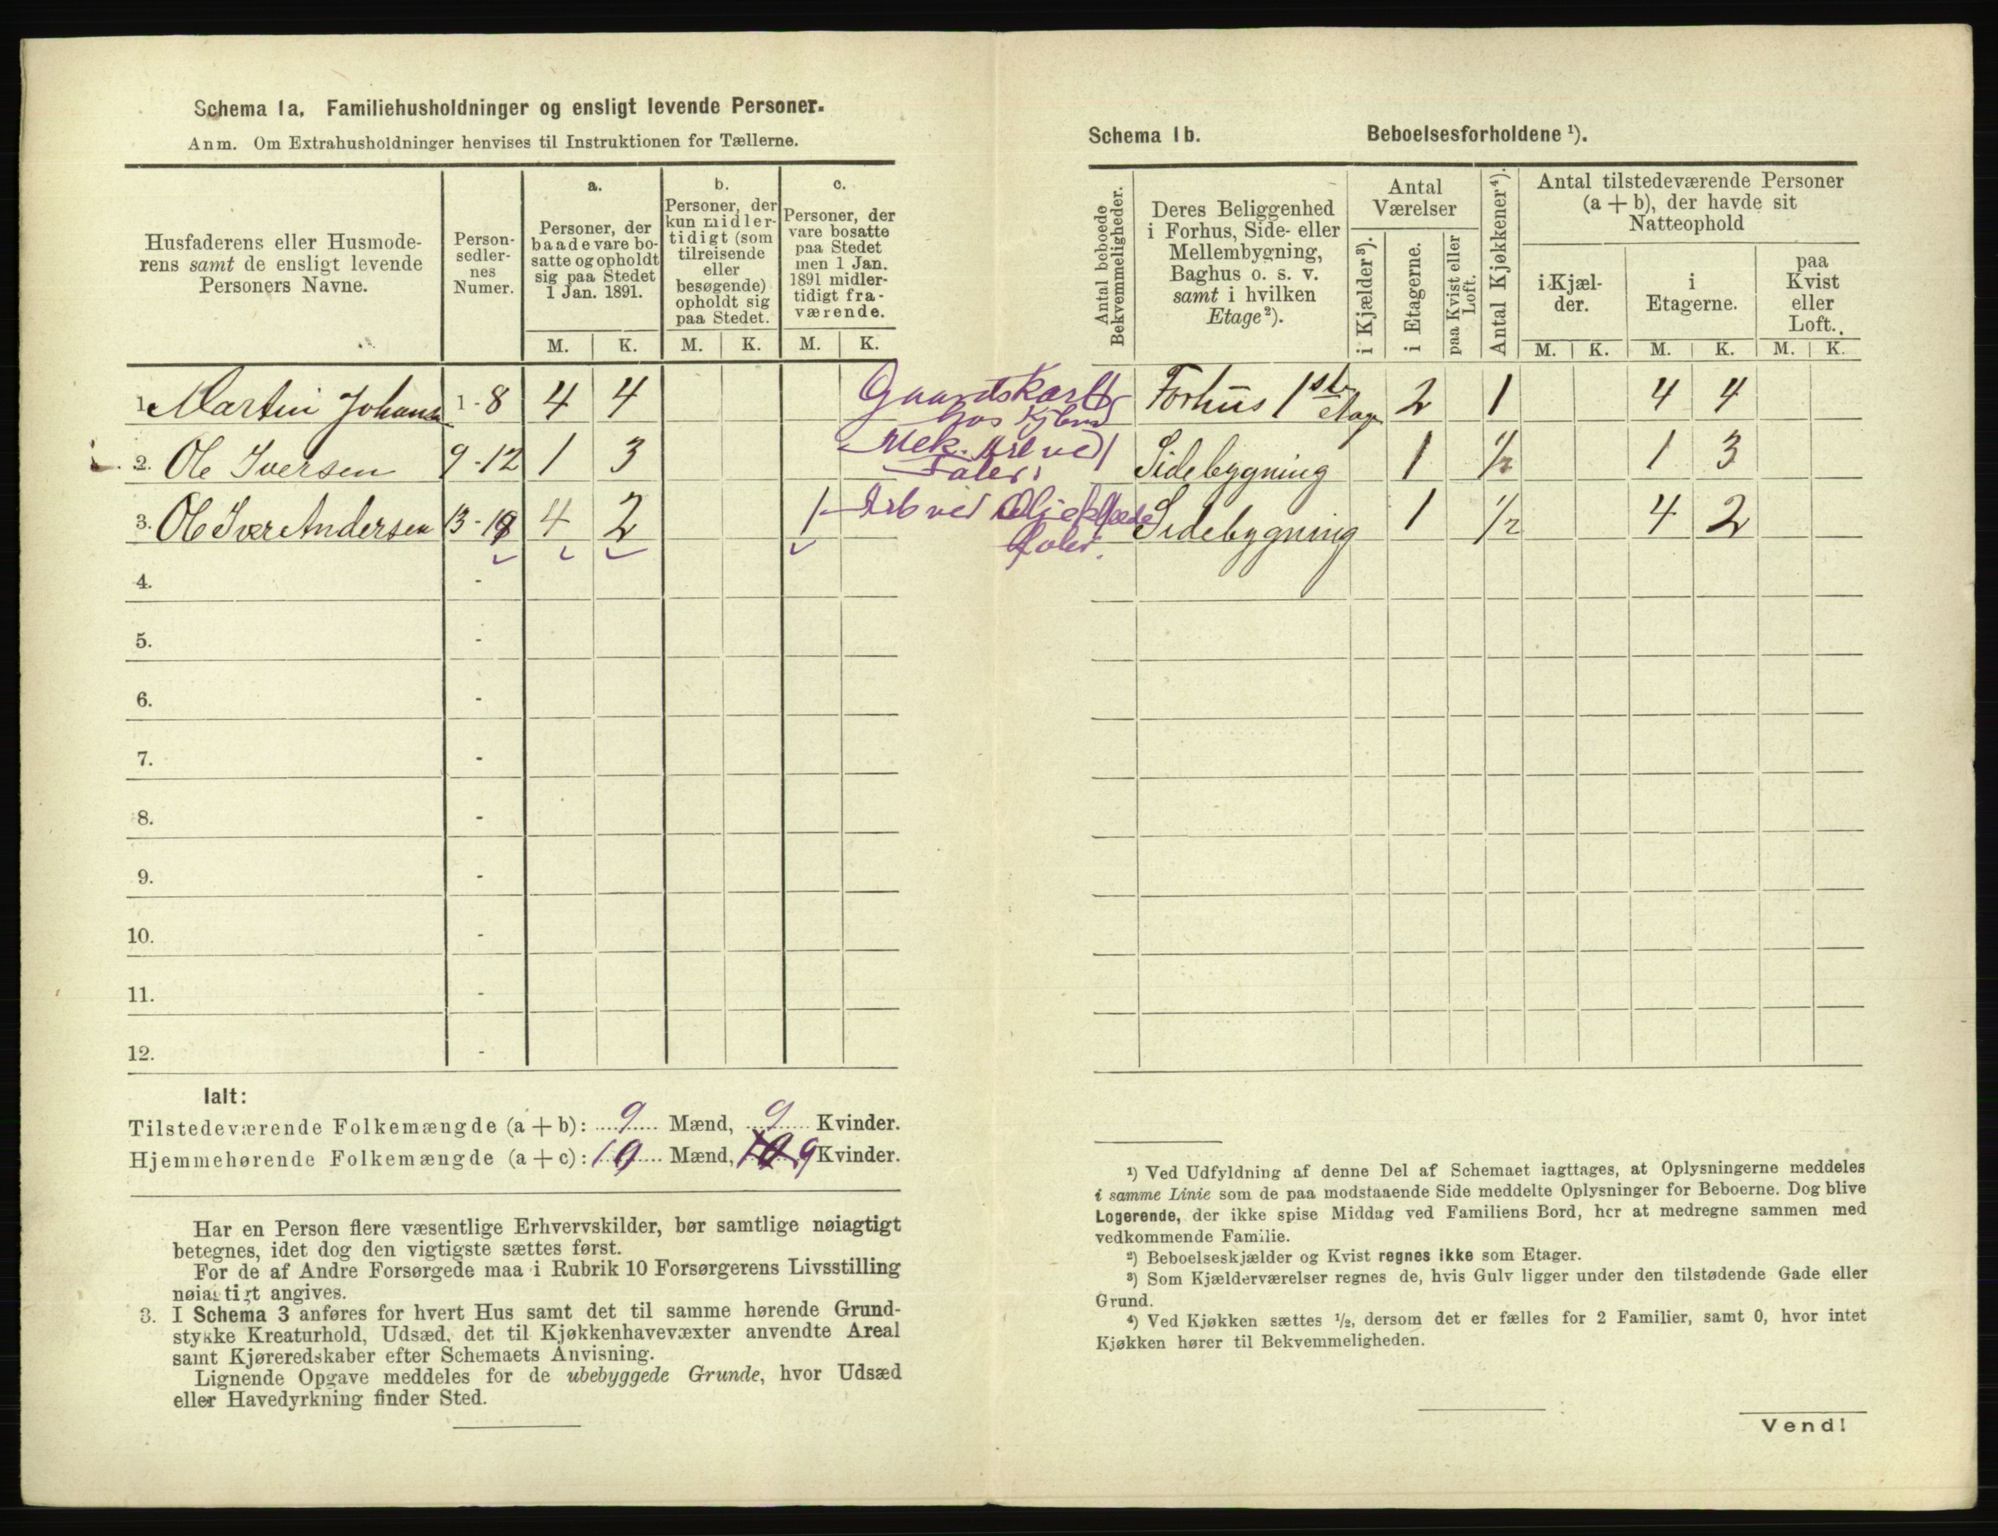 Schema 1a. Familiehusholdninger og ensligt levende Personer.
Anm. Om Extrahusholdninger henvises til Instruktionen for Tællerne.
Husfaderens eller Husmode-
rens samt de ensligt levende
Personers Navne.
Person-
sedler-
nes
Numer.
a.
Personer, der
baade vare bo-
satte og opholdt
sig paa Stedet
1 Jan. 1891.
b.
Personer, der
kun midler-
tidigt (som
tilreisende
eller
besøgende)
opholdt sig
paa Stedet.
c.
Personer, der
vare bosatte
paa Stedet
men 1 Jan.
1891 midler-
tidigt fra-
værende.
M. K. M. K. M. K.
1. Martin Johans 1-8 4 4
2. Ole Iversen 9-12 1 3
3. Ole Iver Andersen 13-18 4 2 1
4. -
5. -
6. -
7. -
8. -
9. -
10. -
11. -
12. -
Ialt:
Tilstedeværende Folkemængde (a + b): 9 Mænd, 9 Kvinder.
Hjemmehørende Folkemængde (a + c): 10 Mænd, 9 Kvinder.
Har en Person flere væsentlige Erhvervskilder, bør samtlige nøiagtigt
betegnes, idet dog den vigtigste sættes først.
For de af Andre Forsørgede maa i Rubrik 10 Forsørgerens Livsstilling
nøiagtigt angives.
3. I Schema 3 anføres for hvert Hus samt det til samme hørende Grund-
stykke Kreaturhold, Udsæd, det til Kjøkkenhavevæxter anvendte Areal
samt Kjøreredskaber efter Schemaets Anvisning.
Lignende Opgave meddeles for de ubebyggede Grunde, hvor Udsæd
eller Havedyrkning finder Sted.
Schema 1b. Beboelsesforholdene ¹).
Antal beboede
Bekvemmeligheder.
Deres Beliggenhed
i Forhus, Side- eller
Mellembygning,
Baghus o. s. v.
samt i hvilken
Etage²).
Antal
Værelser
i Kjælder³).
i Etagerne.
paa Kvist eller
Loft.
Antal Kjøkkener⁴).
Antal tilstedeværende Personer
(a + b), der havde sit
Natteophold
i Kjæl-
der.
i
Etagerne.
paa
Kvist
eller
Loft.
M. K. M. K. M. K.
Gaardskarl
hos
Forhus 1ste Etage 2 1 4 4
Mek. Arb ved
1 Sidebygning 1 1/2 1 3
Arb ved
Sidebygning 1 1/2 4 2
¹) Ved Udfyldning af denne Del af Schemaet iagttages, at Oplysningerne meddeles
i samme Linie som de paa modstaaende Side meddelte Oplysninger for Beboerne. Dog blive
Logerende, der ikke spise Middag ved Familiens Bord, her at medregne sammen med
vedkommende Familie.
²) Beboelseskjælder og Kvist regnes ikke som Etager.
³) Som Kjælderværelser regnes de, hvis Gulv ligger under den tilstødende Gade eller
Grund.
⁴) Ved Kjøkken sættes ½, dersom det er fælles for 2 Familier, samt 0, hvor intet
Kjøkken hører til Bekvemmeligheden.
Vend!